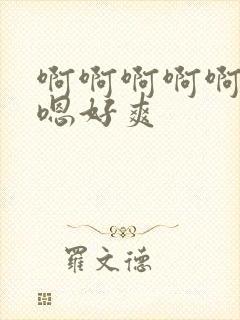 啊啊啊啊啊
嗯好爽
羅文德